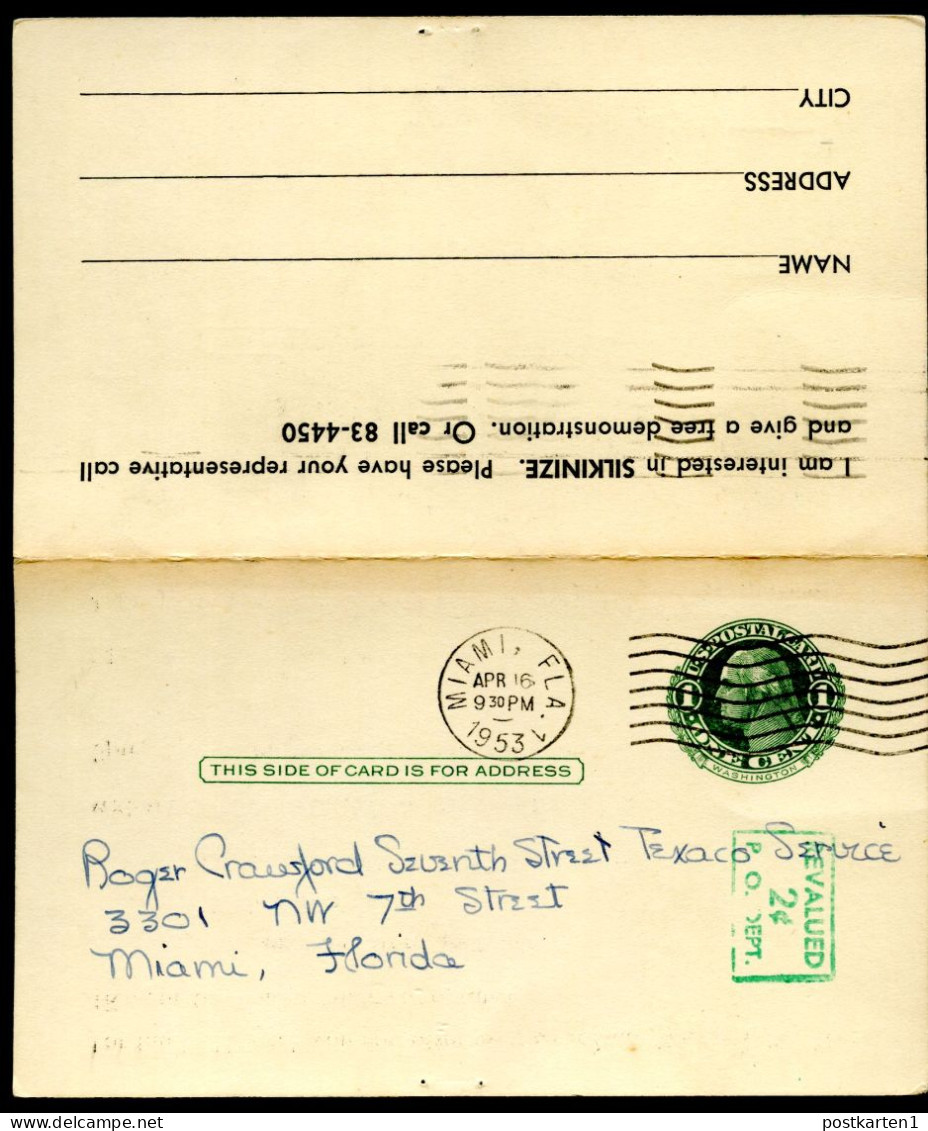 I am interested in SILKINIZE. Please have your representative call
and give a free demonstration. Or call 83-4450
NAME
ADDRESS
CITY
MIAMI, FLA.
APR 16
9 30 PM
1953
U.S. POSTAL CARD
1 1
ONE CENT
WASHINGTON
THIS SIDE OF CARD IS FOR ADDRESS
Roger Crawford Seventh Street Texaco Service
3301 NW 7th Street
Miami, Florida
REVALUED
2¢
P. O. DEPT.
postkarten1